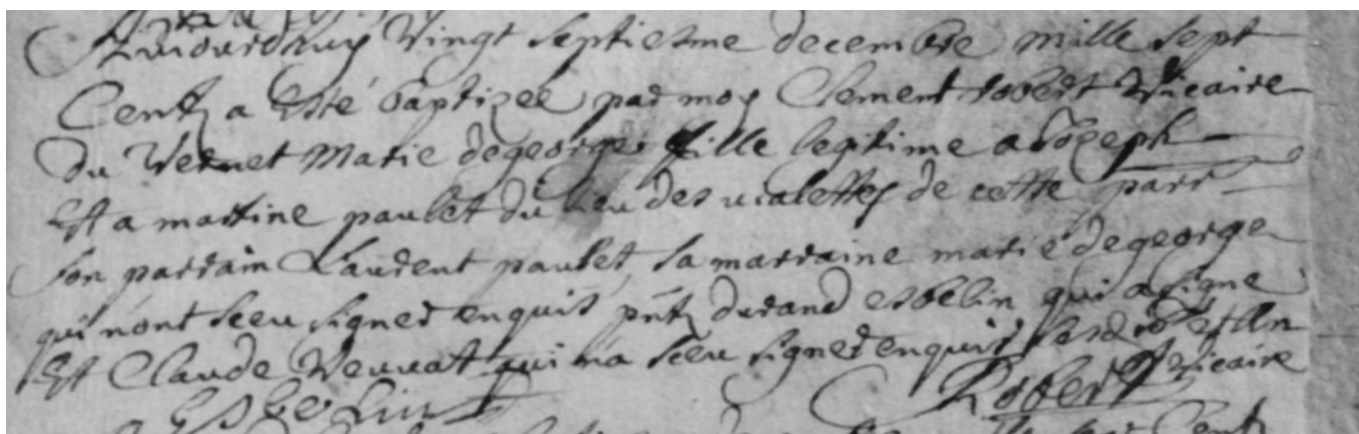 Aujourdhuy Vingt septiesme decembre mille sept
Centz a esté baptizee par moy Clement robert Vicaire
du Vernet Marie degeorge fille legitime a Jozeph
Est a martine paulet du lieu des vialettes de cette parr
son parrain Laurent paulet sa marraine marie degeorge
qui n'ont sceu signer enquis pntz durand esbelin qui a signe
Est Claude qui n'a sceu signer enquis les jour et An
Esbelin Robert Vicaire